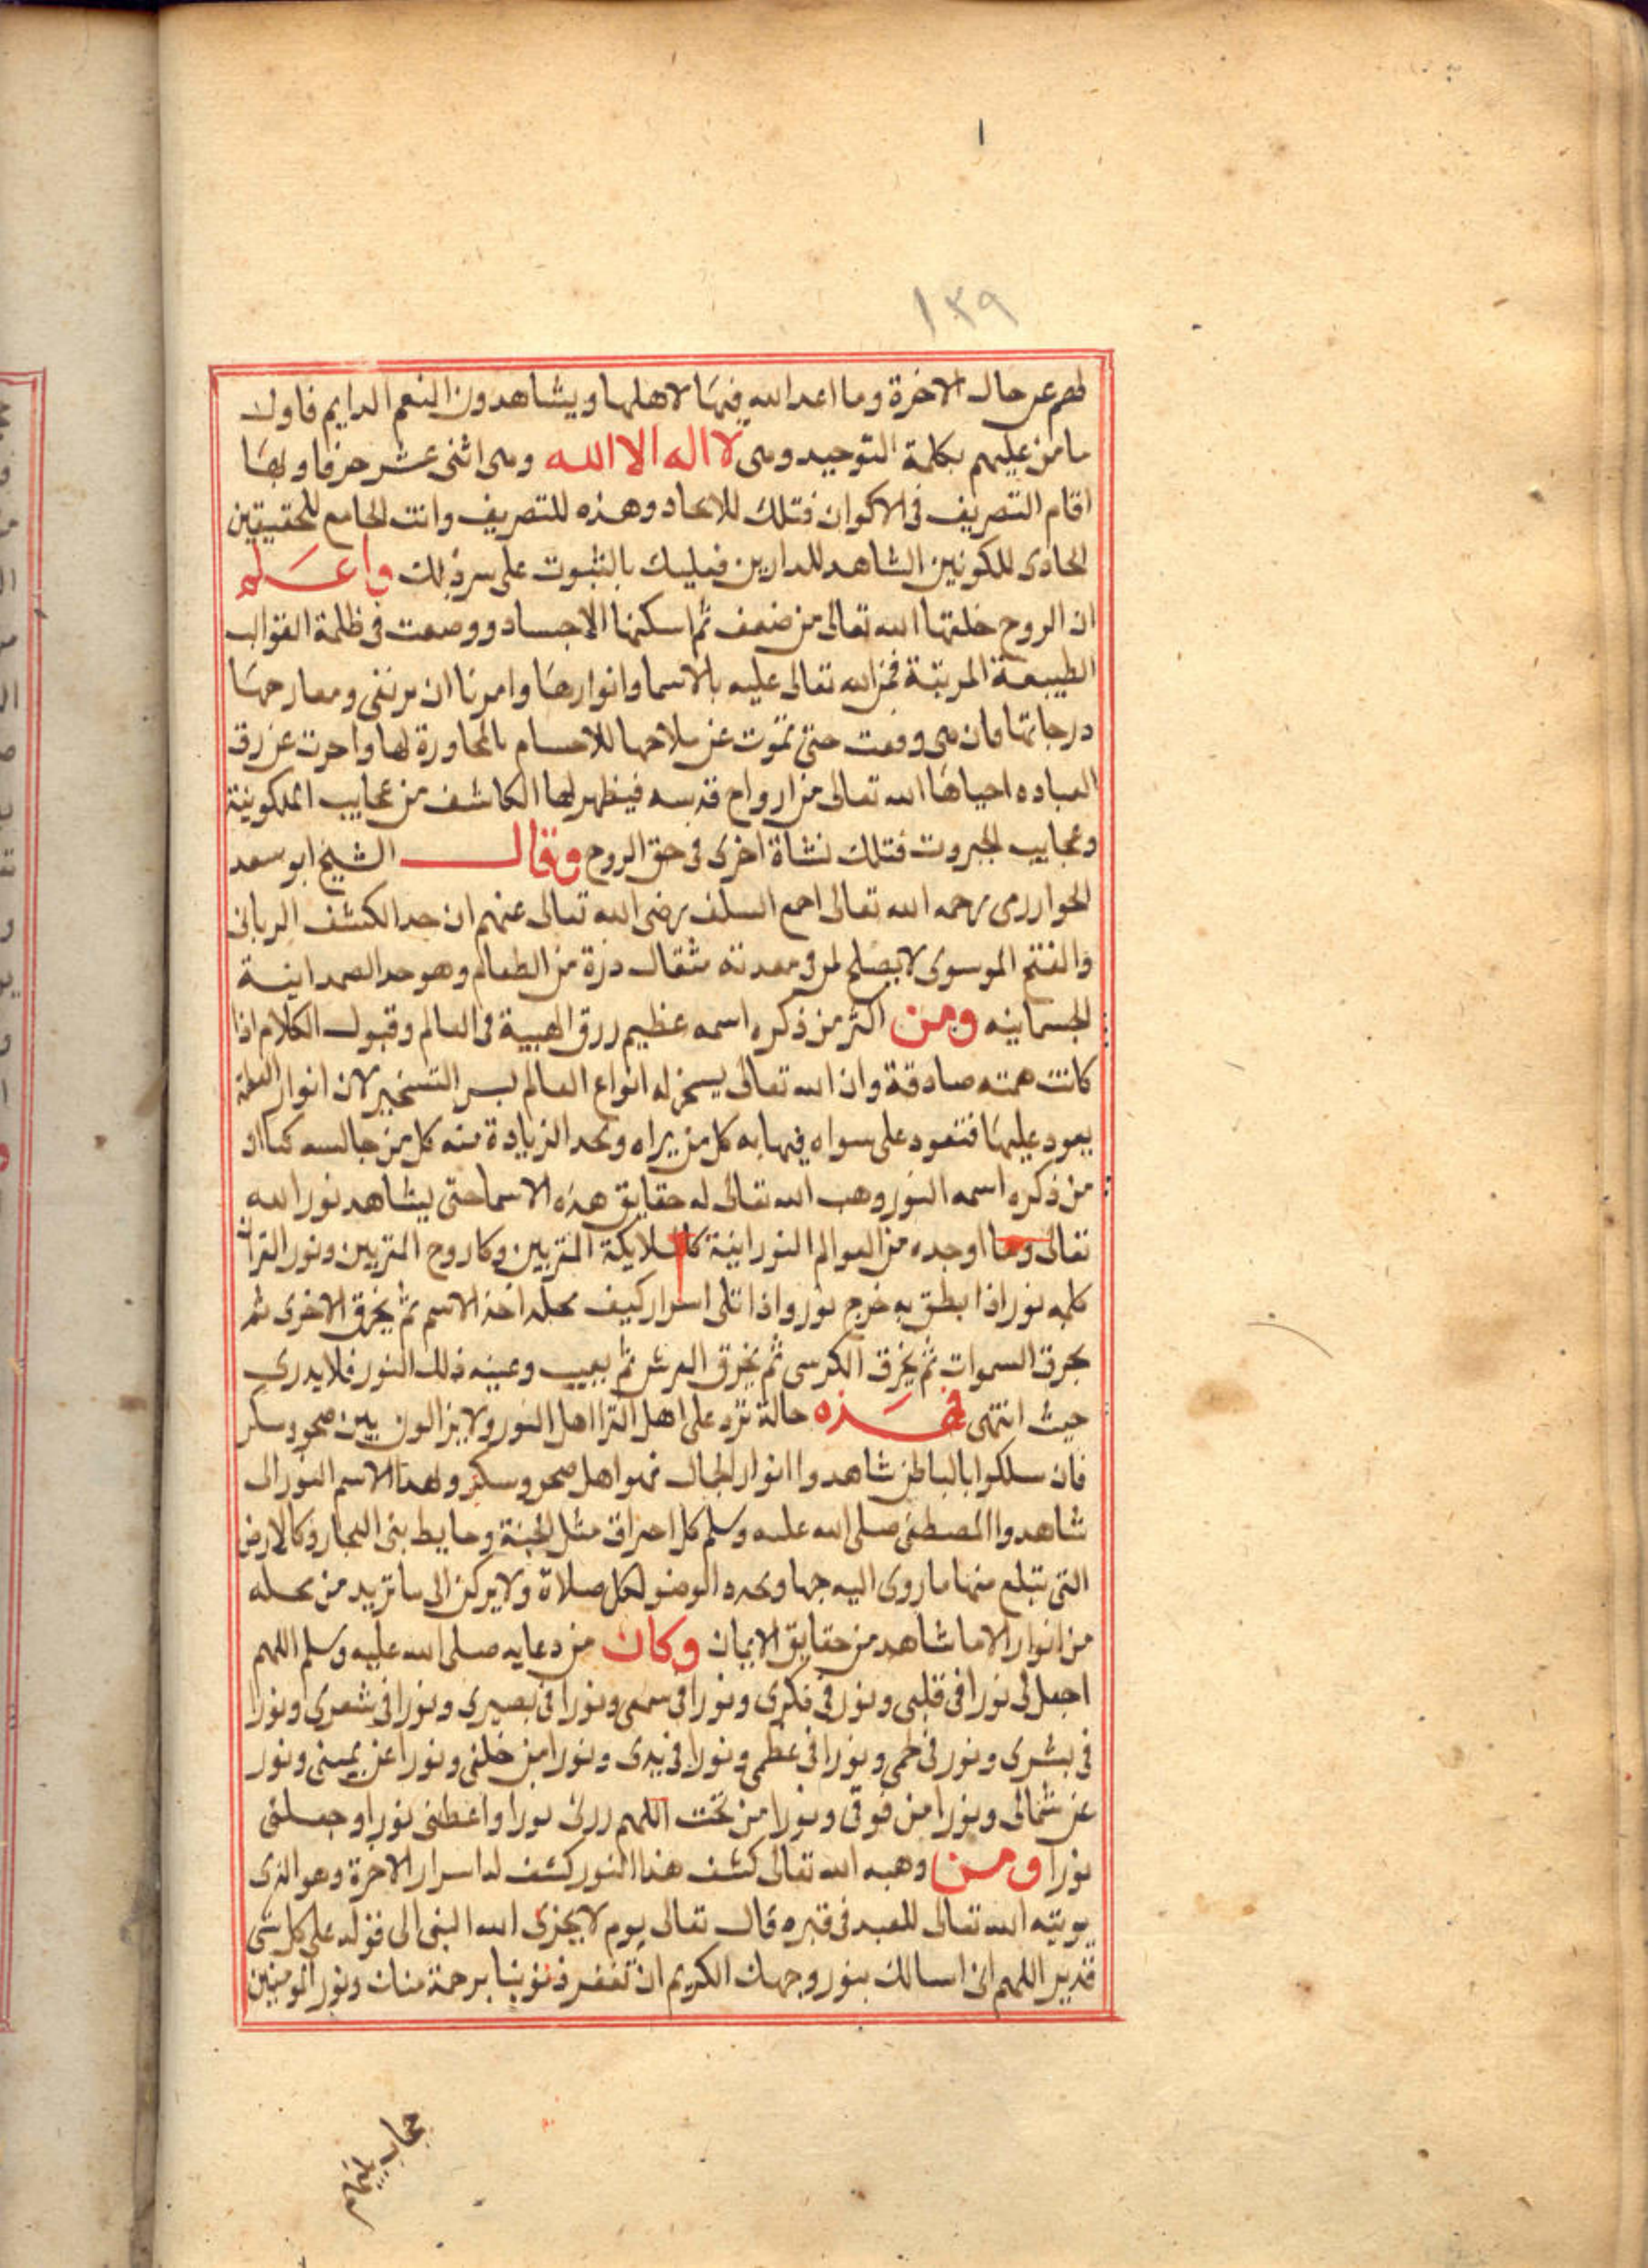 ١
١٣٩
لهم عن حال الاخرة وما اعد الله فيها لاهلها ويشاهدون النعم الدايم فاول
ما من عليهم بكلمة التوحيد وهى لا اله الا الله وهى اثنى عشر حرفا وبها
اقام التصريف فى الاكوان فتلك للايحاد وهذه للتصريف وانت الجامع للحقيقتين
الحاوى للكونين الشاهد للدارين فعليك بالثبوت على سر ذلك واعلم
ان الروح خلقها الله تعالى من ضعف ثم اسكنها الاجساد ووضعت فى ظلمة القوالب
الطبيعة المرتبة فمن الله تعالى عليه بالاسما وانوارها وامرنا ان نرتقى ومعارجها
درجاتها فان هى وقعت حتى تموت عن ملاحها للاحسام بالمحاورة لها واحرت عن رق
العباده احياها الله تعالى من ارواح قدسه فيظهر لها الكاشف من عجايب الملكوتية
وعجايب الجبروت فتلك نشاة اخرى فى حق الروح وقال الشيخ ابو سعد
الحواررمى رحمه الله تعالى احمع السلف رضى الله تعالى عنهم ان حد الكشف الربانى
والفتح الموسوى لا يصلح لمن فى معدته مثقال درة من الطعام وهو حد الصمدانية
الجسمانيه ومن اكثر من ذكره اسمه عظيم ررق الهيبة فى العالم وقبول الكلام اذا
كانت همته صادقة وان الله تعالى يسخر له انواع العالم بسر التسخير لان انوار العظمة
يعود عليها فتعود على سواه فيهابه كل من يراه ونحد الزيادة منه كل من جالسه كما ان
من ذكره اسمه النور وهب الله تعالى له حقايق هذه الاسما حتى يشاهد نور الله
تعالى وما اوجده من العوالم النورانية كالملايكة المقربين وكاروح المقربين ونور القران
كلمه نور اذا بطق به خرج نور واذا تلى اسرار كيف محله اخذ الاسم ثم يخرق الاخرى ثم
يحرق السموات ثم يخرق الكرسى ثم يخرق العرش ثم يعيب وعينه ذلك النور فلا يدرى
حيث انتهى فهذه حالة ترد على اهل القرا اهل النور ولا يزالون بين صحو وسكر
فان سلكوا بالباطن شاهدوا انوار الجمال فهوا اهل صحو وسكر وهذا الاسم النور الى
شاهدوا المصطفى صلى الله عليه وسلم كل احراق مثل الجنة وحايط بنى النجار وكالارض
التى تبلع منها ما روى اليه جها ويحدد الوضو لكل صلاة ولا يركن الى ما تريد من محله
من انوار الا ما شاهد من حقايق الايمان وكان من دعايه صلى الله عليه وسلم اللهم
اجعل لى نورا فى قلبى ونور فى فكرى ونورا فى سمعى ونورا فى بصيرى ونورا فى شعرى ونورا
فى بشرى ونور فى لحمى ونورا فى عظمى ونورا فى يدى ونورا من خلفى ونورا عن يمينى ونور
عن شمالى ونورا من فوقى ونورا من تحت اللهم زردنى نورا واعطنى نورا وجعلنى
نورا ومن وهبه الله تعالى كشف هذا النور كشف له اسرار الاخرة وهو الذى
يوتيه الله تعالى للعبد فى قبره قال تعالى يوم لا يخزى الله النبى الى قوله على كل شى
قدير اللهم انى اسالك بنور وجهك الكريم ان تغفر ذنوبنا برحمة منك ونور المومنين